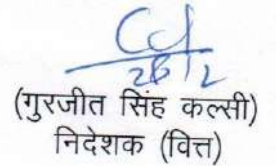 28/2
(गुरजीत सिंह कल्सी)
निदेशक (वित्त)